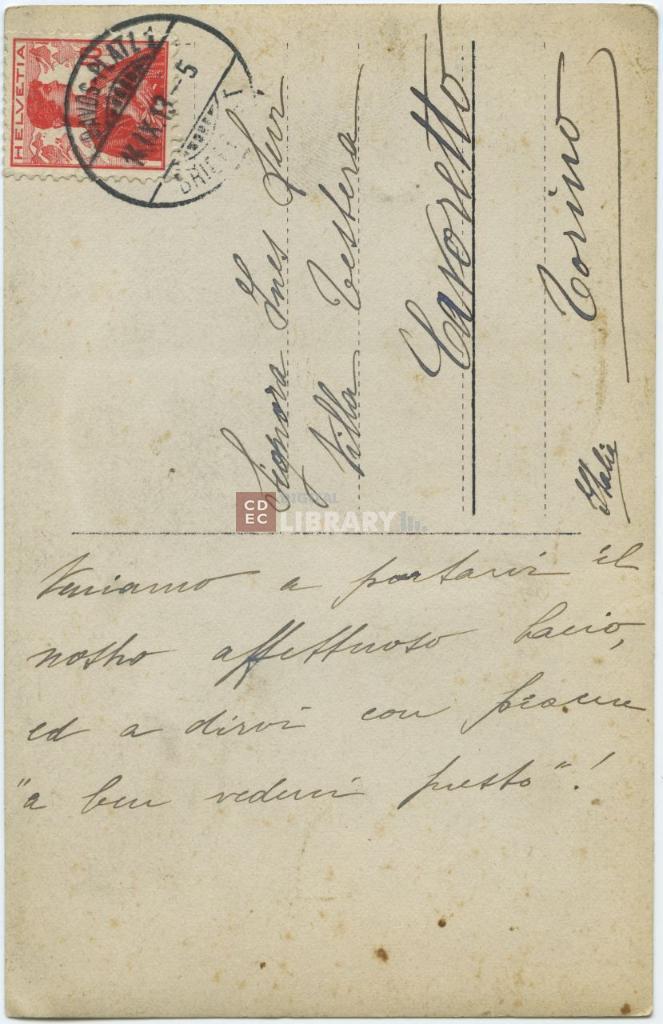 HELVETIA
DAVOS-PLATZ 1
11.IX.13.-5
Signora Ines
Villa Testera
Cavoretto
Torino
Italia
CD
EC
DIGITAL
LIBRARY
Veniamo a portarvi il
nostro affettuoso bacio,
ed a dirvi con piacere
"a ben vederci presto"!